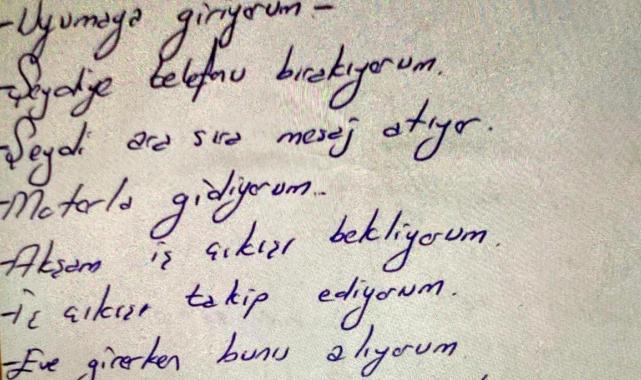 -Uyumaya giriyorum-
-Şeydiye telefonu bırakıyorum.
-Şeydi ara sıra mesaj atıyor.
-Motorla gidiyorum..
-Akşam iş çıkışı bekliyorum.
-iş çıkışı takip ediyorum.
-Eve girerken bunu alıyorum